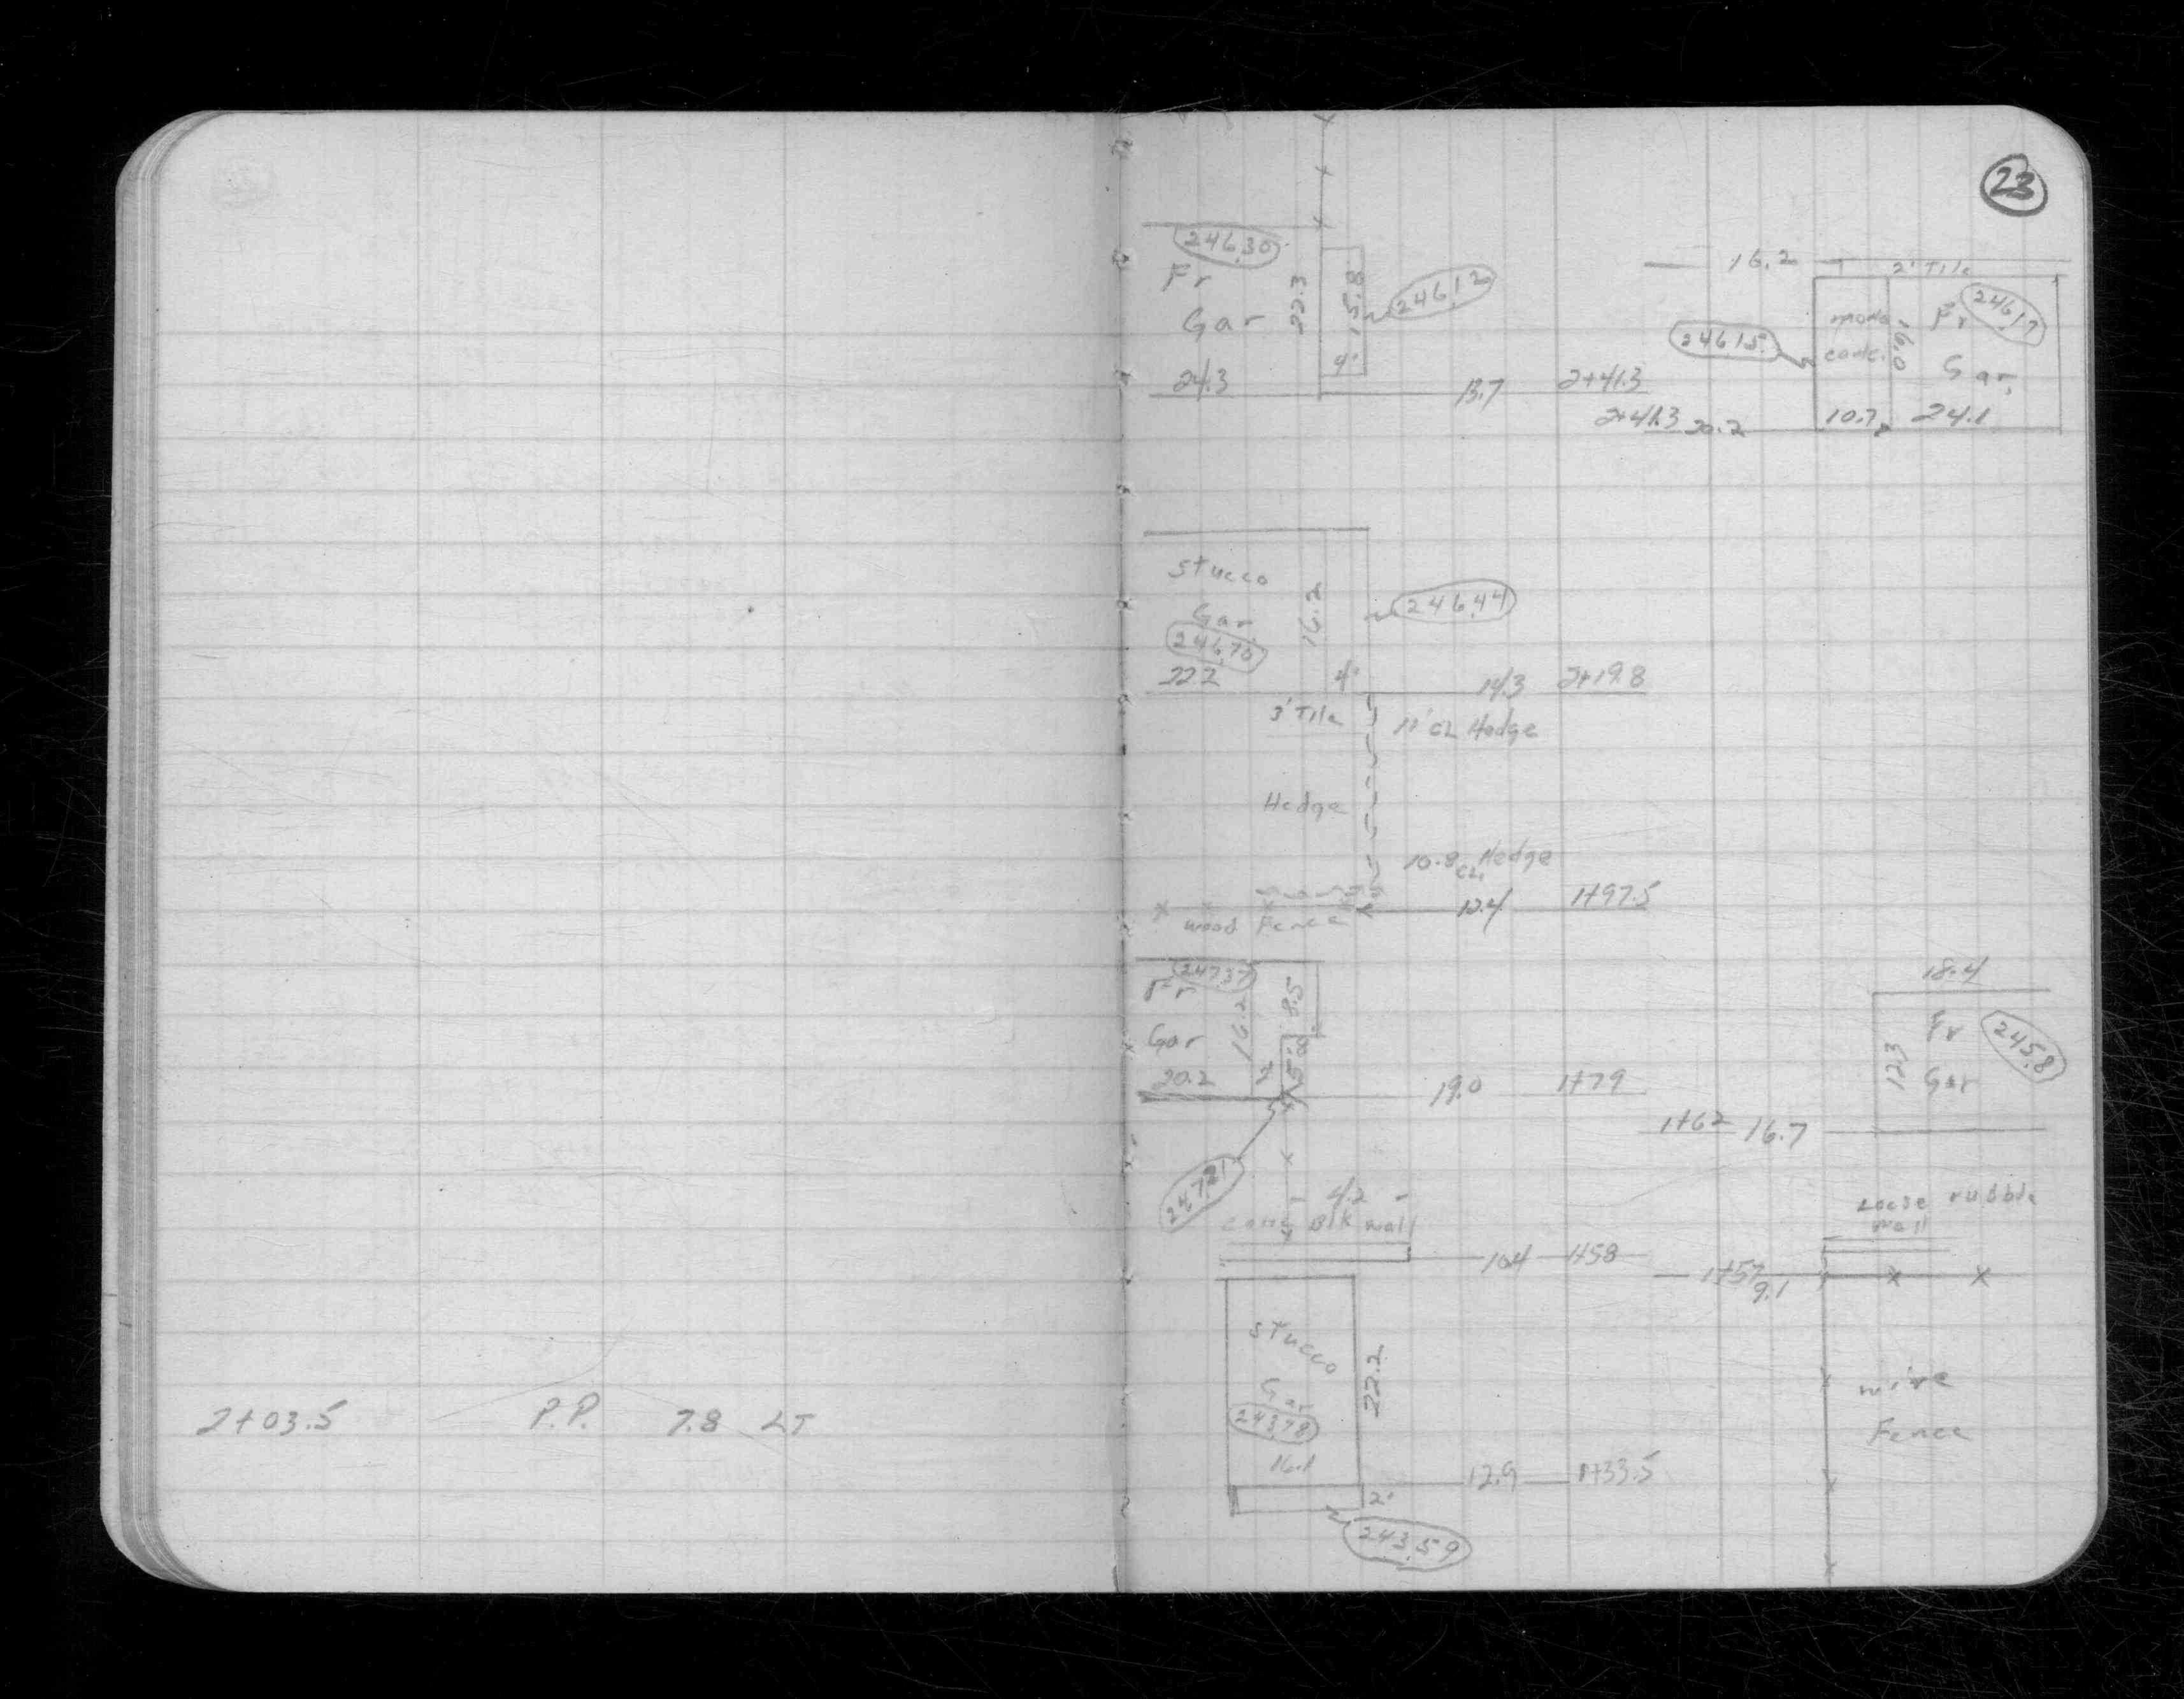 2+03.5 P.P. 7.8 LT
23
246.30
Fr
Gar
24.3
22.3
15.8
4'
246.12
13.7 2+41.3
16.2
2' Tile
246.15
conc.
16.0
Fr
246.17
Gar.
2+41.3 20.2
10.7 24.1
Stucco
Gar.
246.70
22.2
16.2
4'
246.44
14.3 2+19.8
3' Tile
11' CL Hedge
Hedge
10.8 CL. Hedge
12.4 1+97.5
wood Fence
247.37
Fr
Gar
20.2
16.2
8.5
2'
19.0 1+79
247.21
18.4
Fr
Gar
12.3
245.8
1+62 16.7
4.2
conc Blk wall
10.4 1+58
Loose rubble
wall
1+57 9.1
Stucco
Gar
243.78
16.1
22.2
12.9 1+33.5
2'
243.59
wire
Fence